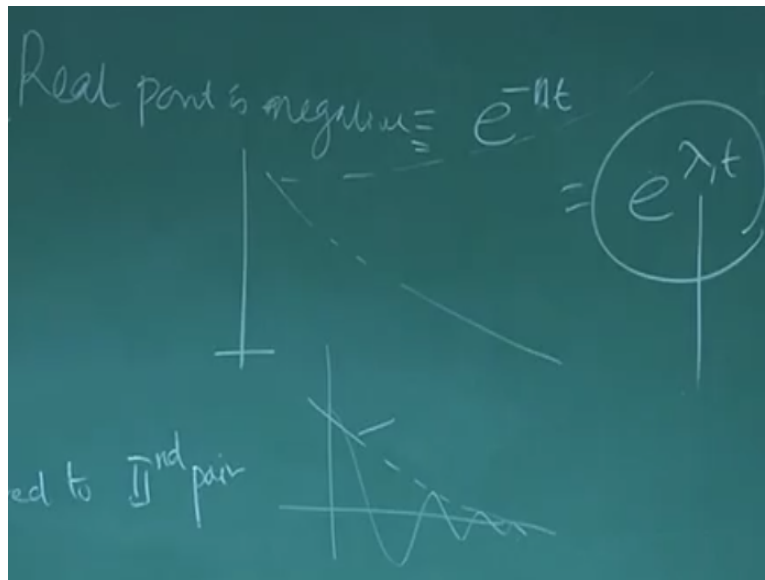 Real part is negative ≡ e^{-nt}
≡ e^{λ₁t}
ed to II^{nd} pair